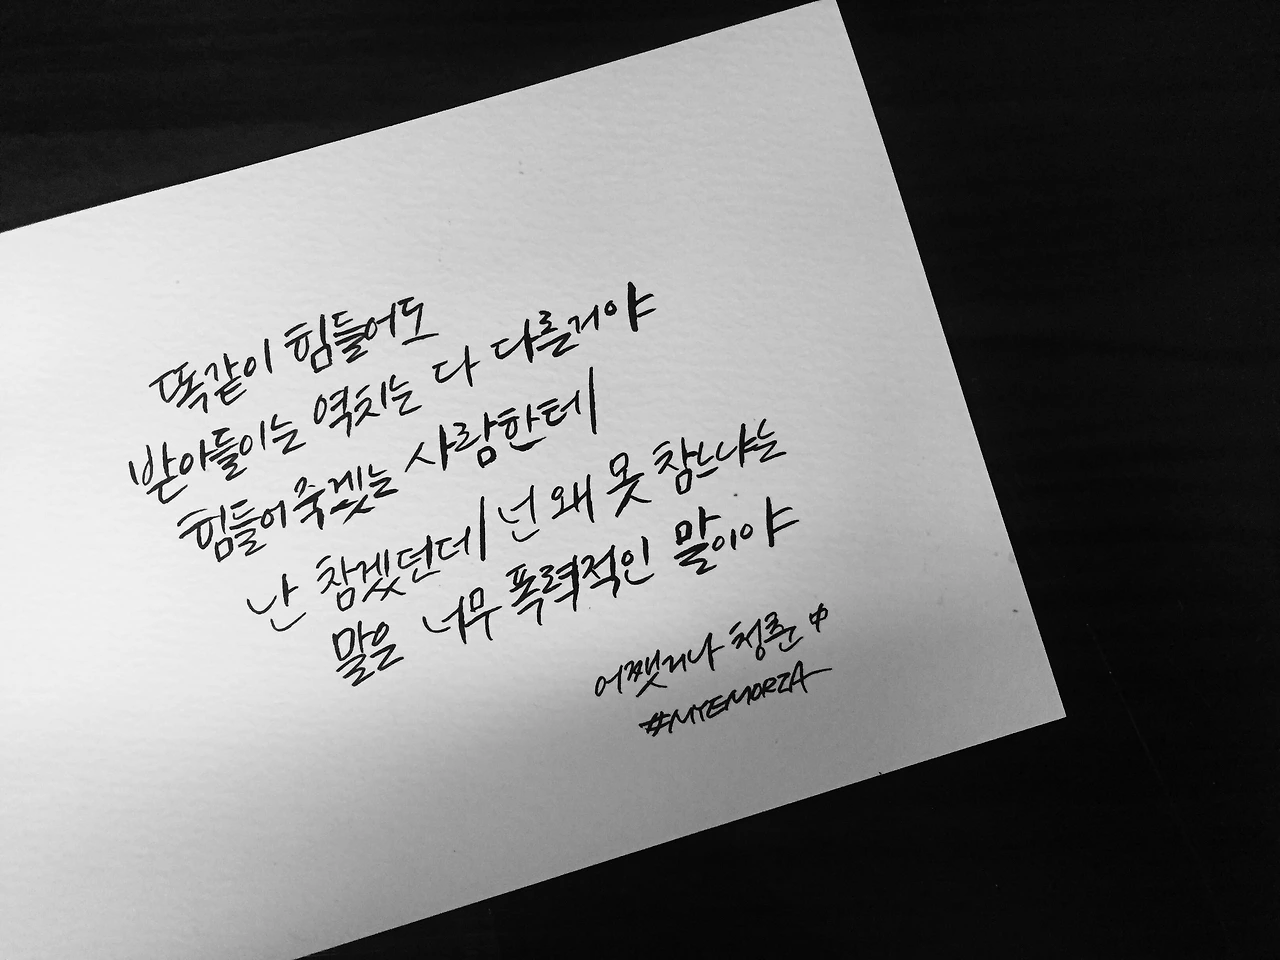 똑같이 힘들어도
받아들이는 역치는 다 다를거야
힘들어 죽겠는 사람한테
난 참겠던데 넌 왜 못 참느냐는
말은 너무 폭력적인 말이야
어쨋거나 청춘 中
#MYEMORIA